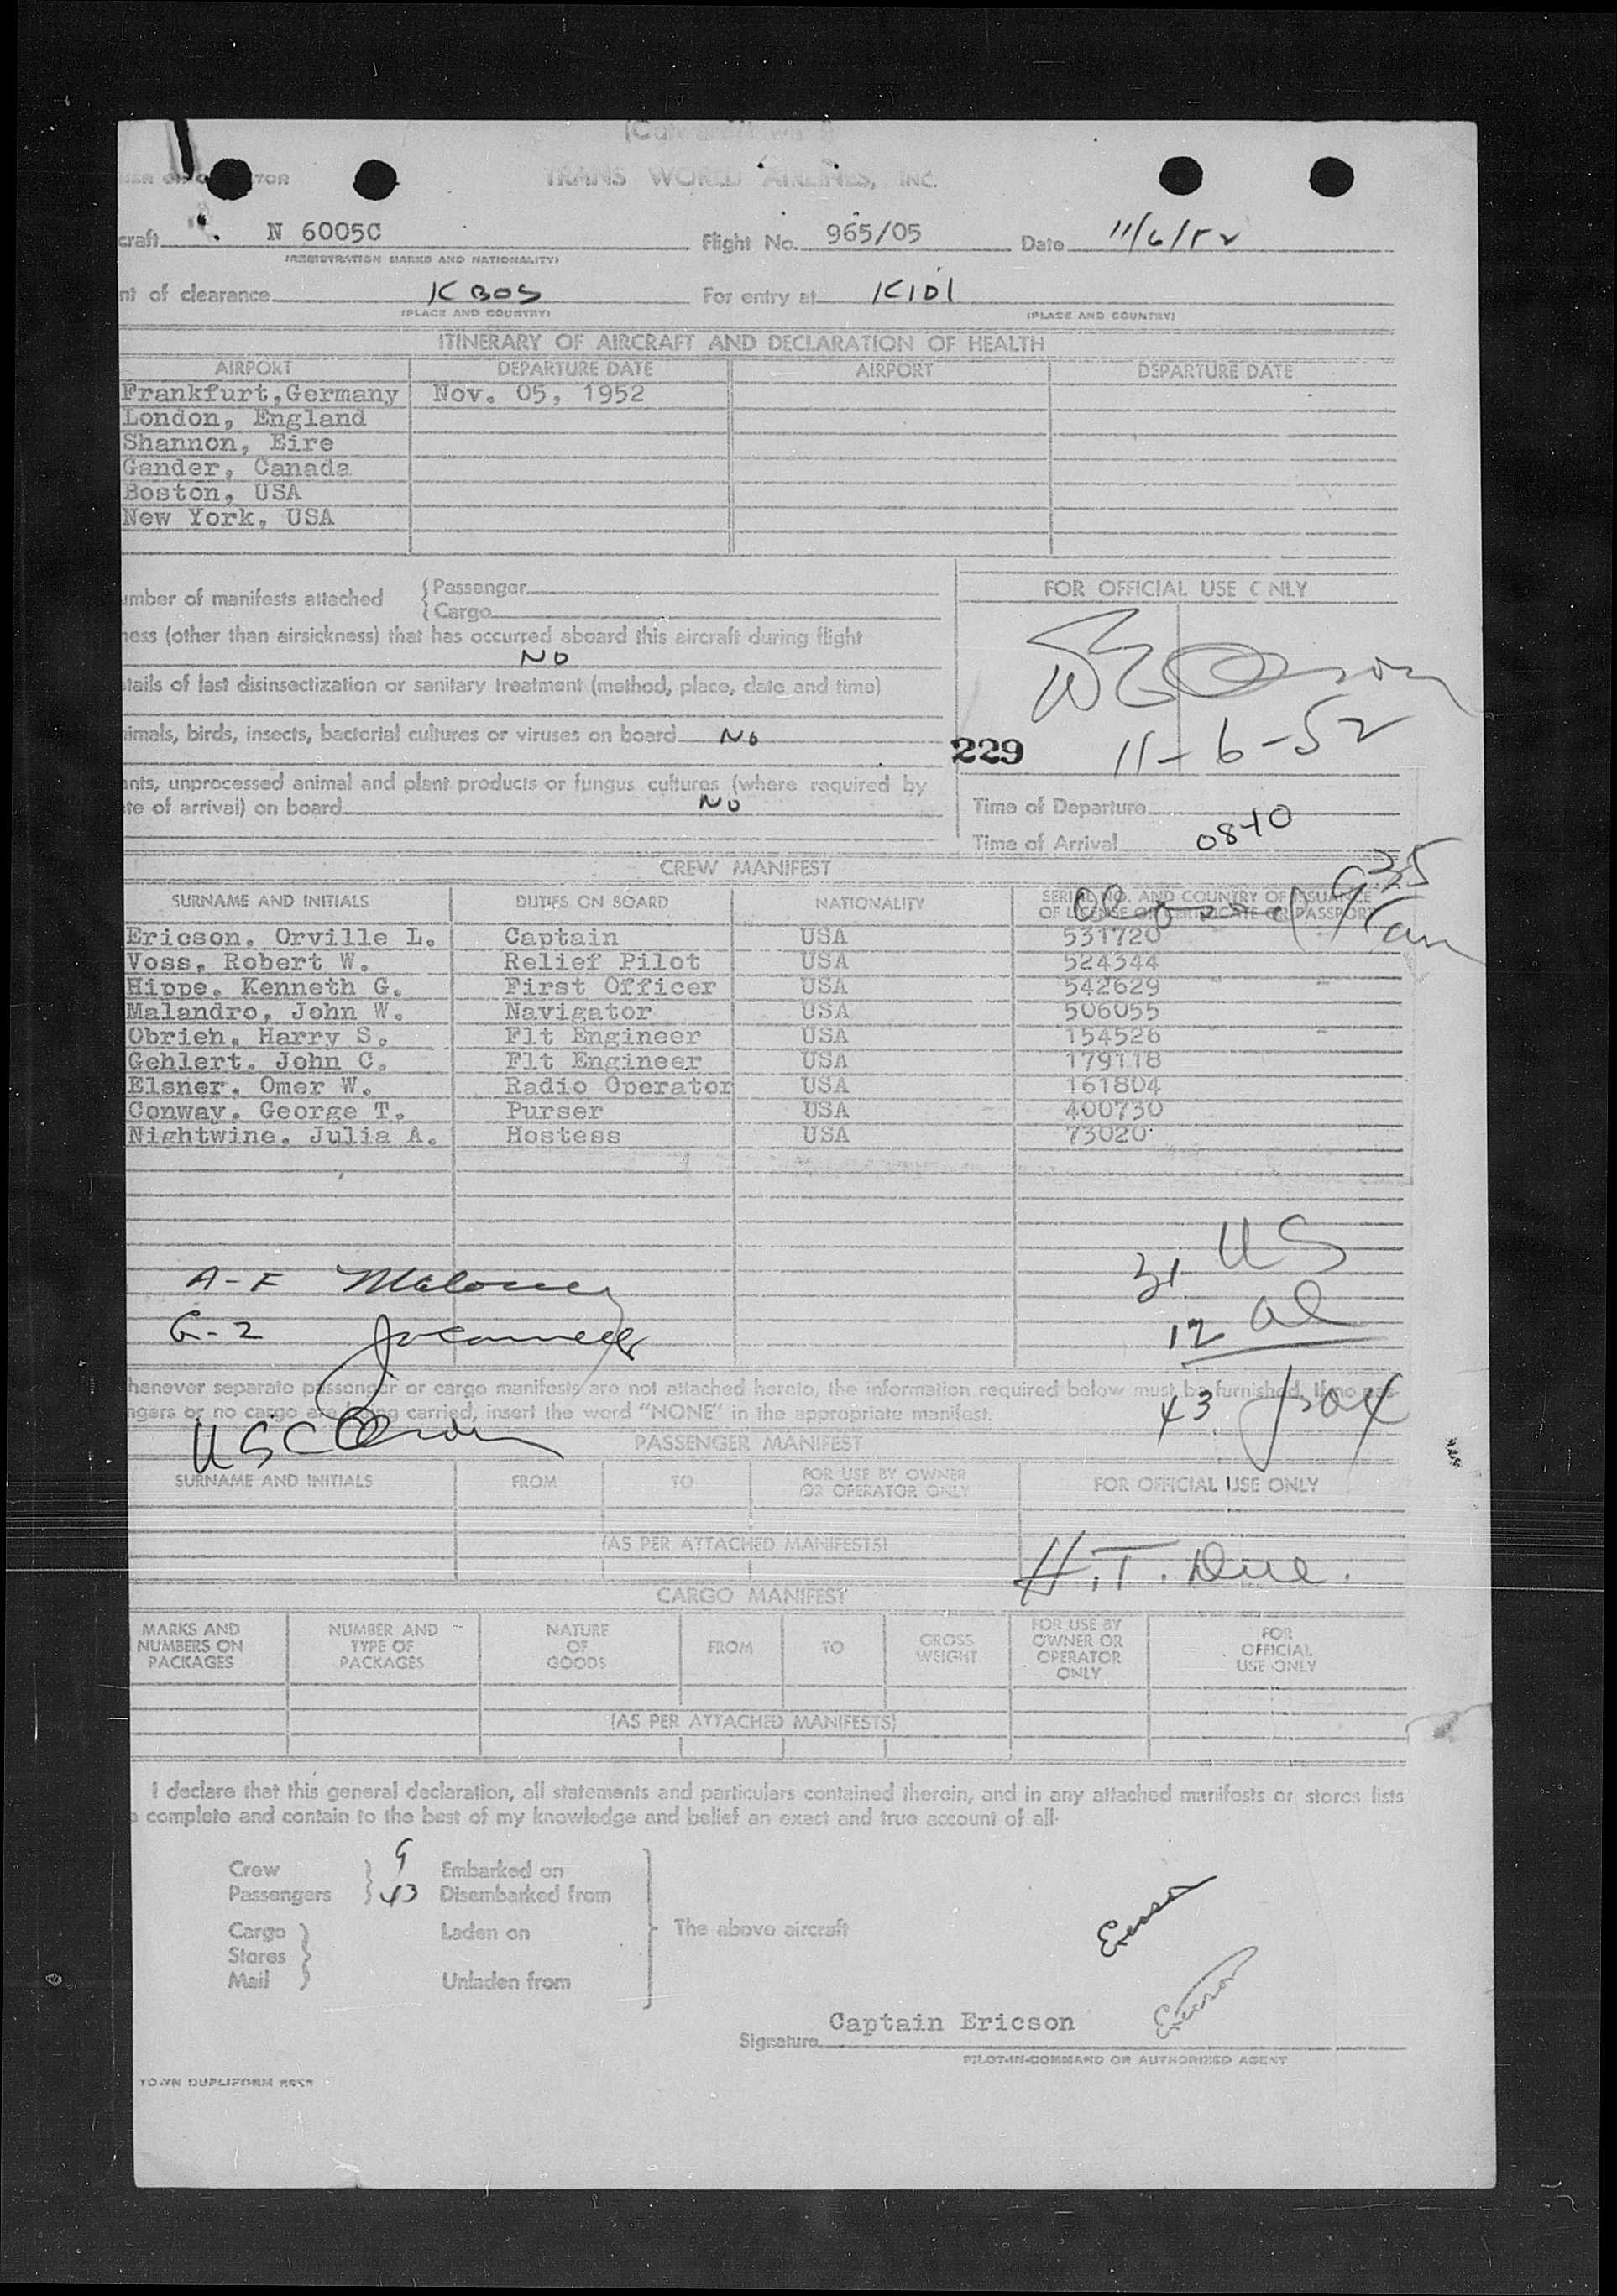 TRANS WORLD AIRLINES, INC.
craft N 6005C Flight No. 965/05 Date 11/6/52
(REGISTRATION MARKS AND NATIONALITY)
nt of clearance KBOS For entry at KIDL
(PLACE AND COUNTRY) (PLACE AND COUNTRY)
ITINERARY OF AIRCRAFT AND DECLARATION OF HEALTH
AIRPORT DEPARTURE DATE AIRPORT DEPARTURE DATE
Frankfurt,Germany Nov. 05, 1952
London, England
Shannon, Eire
Gander, Canada
Boston, USA
New York, USA
umber of manifests attached { Passenger
{ Cargo
FOR OFFICIAL USE ONLY
ness (other than airsickness) that has occurred aboard this aircraft during flight
NO
tails of last disinsectization or sanitary treatment (method, place, date and time)
imals, birds, insects, bacterial cultures or viruses on board No
229 11-6-52
ants, unprocessed animal and plant products or fungus cultures (where required by
te of arrival) on board No
Time of Departure
Time of Arrival 0840
CREW MANIFEST
935
SURNAME AND INITIALS DUTIES ON BOARD NATIONALITY SERIAL NO. AND COUNTRY OF ISSUANCE
OF LICENSE OR CERTIFICATE OR PASSPORT
Ericson, Orville L. Captain USA 531720
Voss, Robert W. Relief Pilot USA 524344
Hippe, Kenneth G. First Officer USA 542629
Malandro, John W. Navigator USA 506055
Obrien, Harry S. Flt Engineer USA 154526
Gehlert, John C. Flt Engineer USA 179118
Elsner, Omer W. Radio Operator USA 161804
Conway, George T. Purser USA 400730
Nightwine, Julia A. Hostess USA 73020
31 US
A-F Maloney
12 al
G-2
henever separate passenger or cargo manifests are not attached hereto, the information required below must be furnished. If no pas-
ngers or no cargo are being carried, insert the word "NONE" in the appropriate manifest.
43
USC
PASSENGER MANIFEST
SURNAME AND INITIALS FROM TO FOR USE BY OWNER OR OPERATOR ONLY FOR OFFICIAL USE ONLY
(AS PER ATTACHED MANIFESTS)
H.T. Due.
CARGO MANIFEST
MARKS AND NUMBERS ON PACKAGES NUMBER AND TYPE OF PACKAGES NATURE OF GOODS FROM TO GROSS WEIGHT FOR USE BY OWNER OR OPERATOR ONLY FOR OFFICIAL USE ONLY
(AS PER ATTACHED MANIFESTS)
I declare that this general declaration, all statements and particulars contained therein, and in any attached manifests or stores lists
e complete and contain to the best of my knowledge and belief an exact and true account of all-
Crew 9 Embarked on
Passengers 43 Disembarked from
Cargo Laden on The above aircraft
Stores
Mail Unladen from
Ericson
Ericson
Signature Captain Ericson
PILOT-IN-COMMAND OR AUTHORIZED AGENT